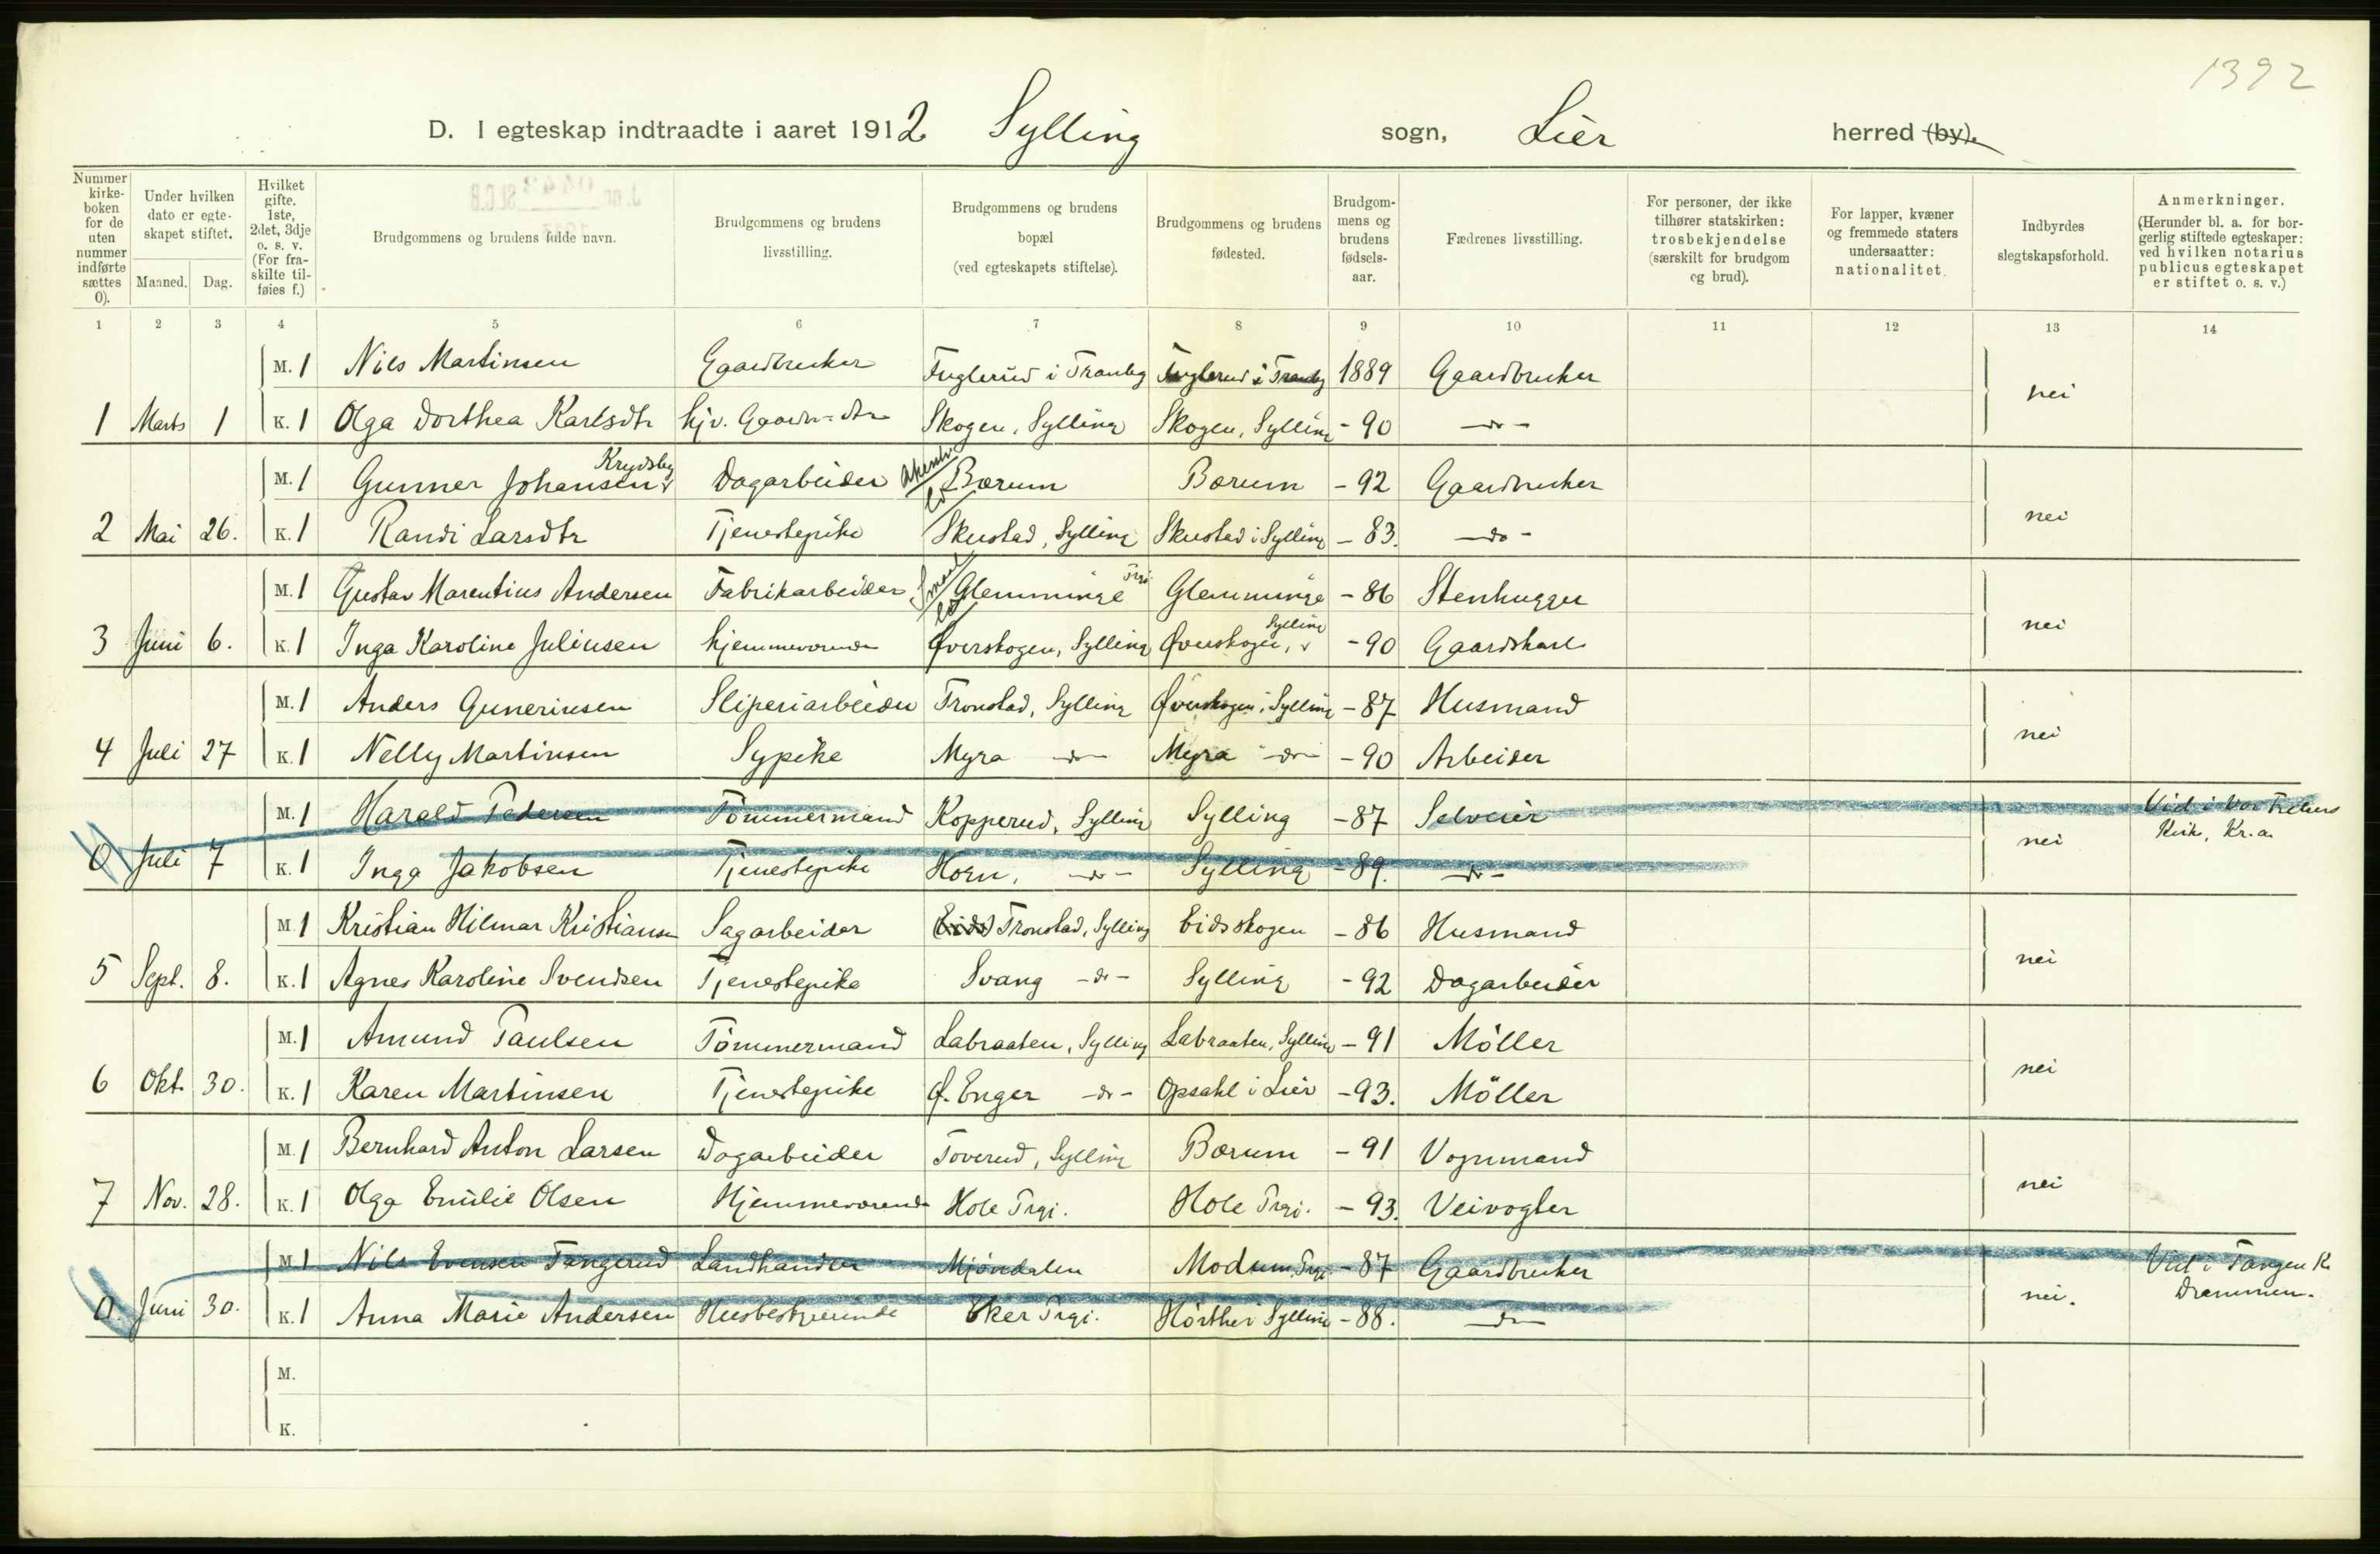 1392
D. I egteskap indtraadte i aaret 1912 Sylling sogn, Lier herred (by).
Nummer kirke- boken for de uten nummer indførte sættes 0).
Under hvilken dato er egte- skapet stiftet.
Maaned. Dag.
Hvilket gifte. 1ste, 2det, 3dje o. s. v. (For fra- skilte til- føies f.)
Brudgommens og brudens fulde navn.
Brudgommens og brudens livsstilling.
Brudgommens og brudens bopæl (ved egteskapets stiftelse).
Brudgommens og brudens fødested.
Brudgom- mens og brudens fødsels- aar.
Fædrenes livsstilling.
For personer, der ikke tilhører statskirken: trosbekjendelse (særskilt for brudgom og brud).
For lapper, kvæner og fremmede staters undersaatter: nationalitet.
Indbyrdes slegtskapsforhold.
Anmerkninger. (Herunder bl. a. for bor- gerlig stiftede egteskaper: ved hvilken notarius publicus egteskapet er stiftet o. s. v.)
1 2 3 4 5 6 7 8 9 10 11 12 13 14
M. 1 Nils Martinsen Gaardbruker Fuglerud i Tranby Fuglerud i Tranby 1889 Gaardbruker
nei
1 Marts 1 K. 1 Olga Dorthea Karlsdtr hjv. Gaardbr-dtr Skogen, Sylling Skogen, Sylling - 90 - do -
Krydsby
M. 1 Gunner Johansen Dagarbeider Akersh. Bærum Bærum - 92 Gaardbruker
nei
2 Mai 26. K. 1 Randi Larsdtr Tjenestepike Skustad, Sylling Skustad i Sylling - 83. - do -
M. 1 Gustav Marentius Andersen Fabrikarbeider Smaal Glemminge Prgj. Glemminge - 86 Stenhugger
nei
3 Juni 6. K. 1 Inga Karoline Juliussen hjemmeværende Øverskogen, Sylling Øverskogen, Sylling - 90 Gaardskarl
M. 1 Anders Guneriusen Sliperiarbeider Tronstad, Sylling Øverskogen i Sylling - 87 Husmand
nei
4 Juli 27 K. 1 Nelly Martinsen Sypike Myra - do - Myra - do - - 90 Arbeider
M. 1 Harald Pedersen Tömmermand Kopperud, Sylling Sylling - 87 Selveier Vid i Vor Frelsers
nei Kirke, Kr.a.
0 Juli 7 K. 1 Inga Jakobsen Tjenestepike Horn, - do - Sylling - 89. - do -
M. 1 Kristian Hilmar Kristiansen Sagarbeider (Eids) Tronstad, Sylling Eidsskogen - 86 Husmand
nei
5 Sept. 8. K. 1 Agnes Karoline Svendsen Tjenestepike Svang - do - Sylling - 92 Dagarbeider
M. 1 Amund Paulsen Tömmermand Labraaten, Sylling Labraaten, Sylling - 91 Möller
nei
6 Okt. 30. K. 1 Karen Martinsen Tjenestepike Ø. Enger - do - Opsahl i Lier - 93. Möller
M. 1 Bernhard Anton Larsen Dagarbeider Toverud, Sylling Bærum - 91 Vognmand
nei
7 Nov. 28. K. 1 Olga Emilie Olsen Hjemmeværende Hole Prgj. Hole Prgj. - 93. Veivogter
M. 1 Nils Evensen Tangerud Landhandler Mjöndalen Modum, Prgj. - 87 Gaardbruker Vid i Tangen K.
nei. Drammen.
0. Juni 30. K. 1 Anna Marie Andersen Husbestyrerinde Eker Prgj. Hörthe i Sylling - 88. - do -
M.
K.